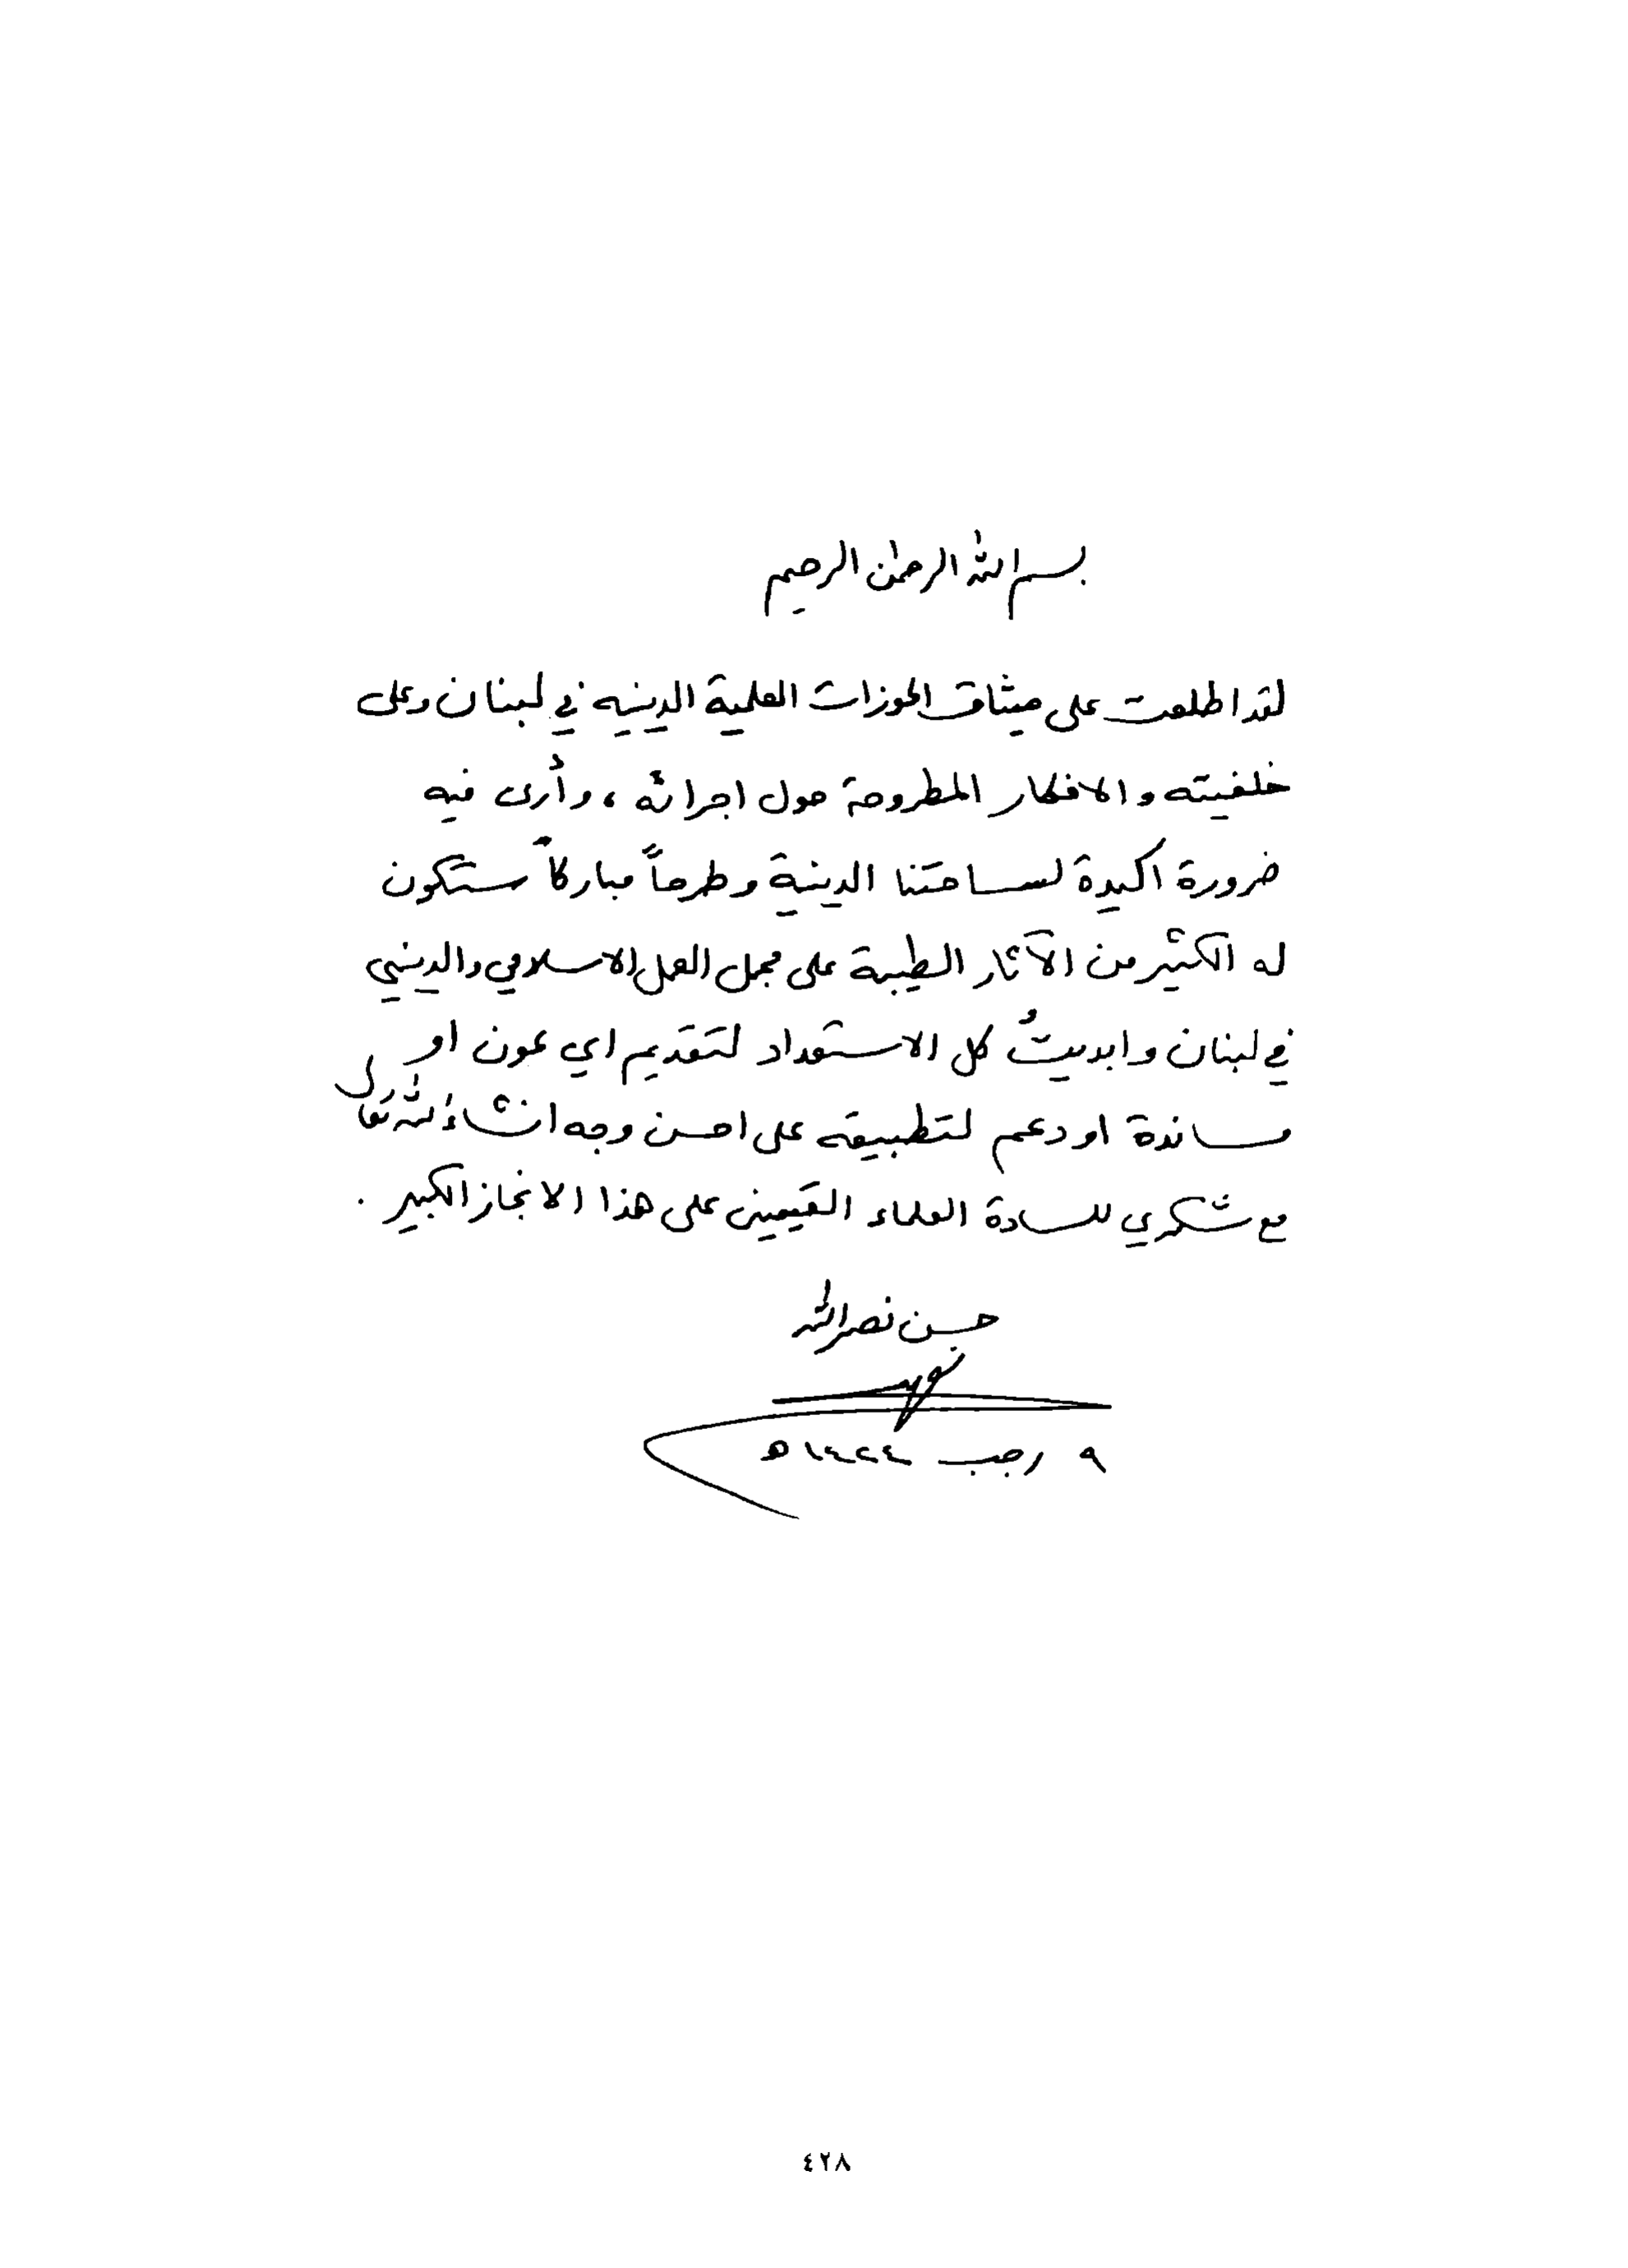 بسم الله الرحمن الرحيم
لقد اطلعت على ميثاق الحوزات العلمية الدينيه في لبنان وعلى
خلفيته والافكار المطروحة حول اجرائه ، وأرى فيه
ضرورة اكيدة لساحتنا الدينية وطرحاً مباركاً ستكون
له الكثير من الآثار الطيبة على مجمل العمل الاسلامي والديني
في لبنان وابديتُ كل الاستعداد لتقديم اي عون او
مساندة او دعم لتطبيقه على احسن وجه انشاء الله تعالى
مع شكري للسادة العلماء القيمين على هذا الانجاز الكبير .
حسن نصر الله
٩ رجب ١٤٢٤ ه
٤٢٨